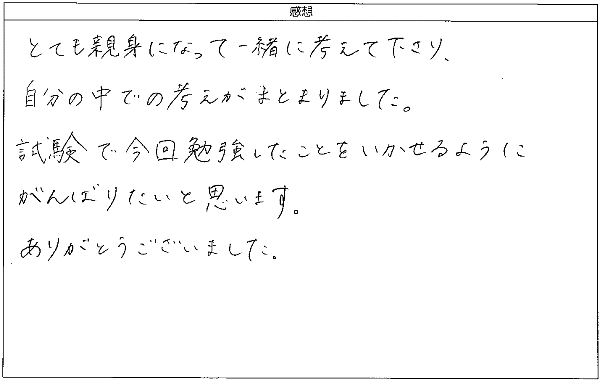 感想
とても親身になって一緒に考えて下さり、
自分の中での考えがまとまりました。
試験で今回勉強したことをいかせるように
がんばりたいと思います。
ありがとうございました。